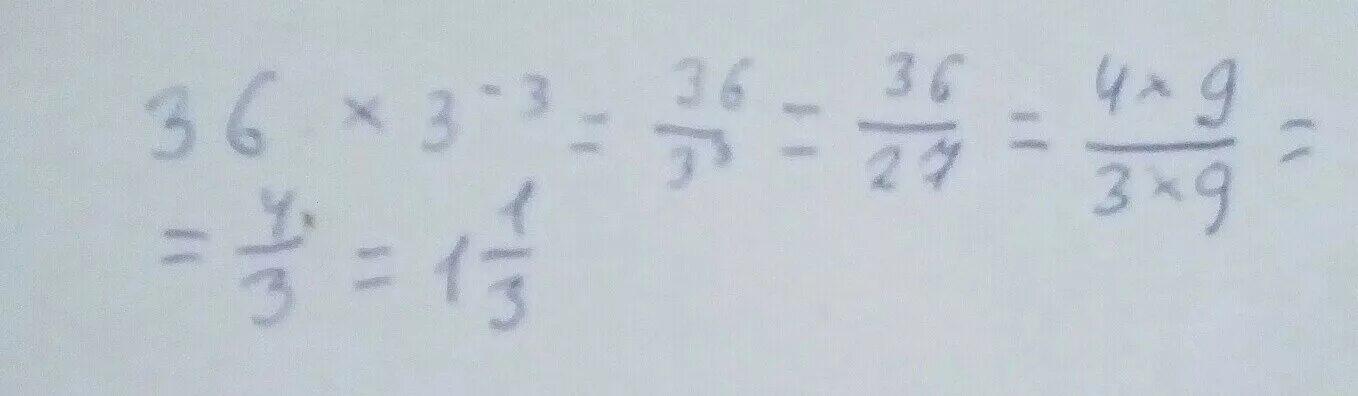 36 × 3⁻³ = 36/3³ = 36/27 = 4×9/3×9 =
= 4/3 = 1 1/3